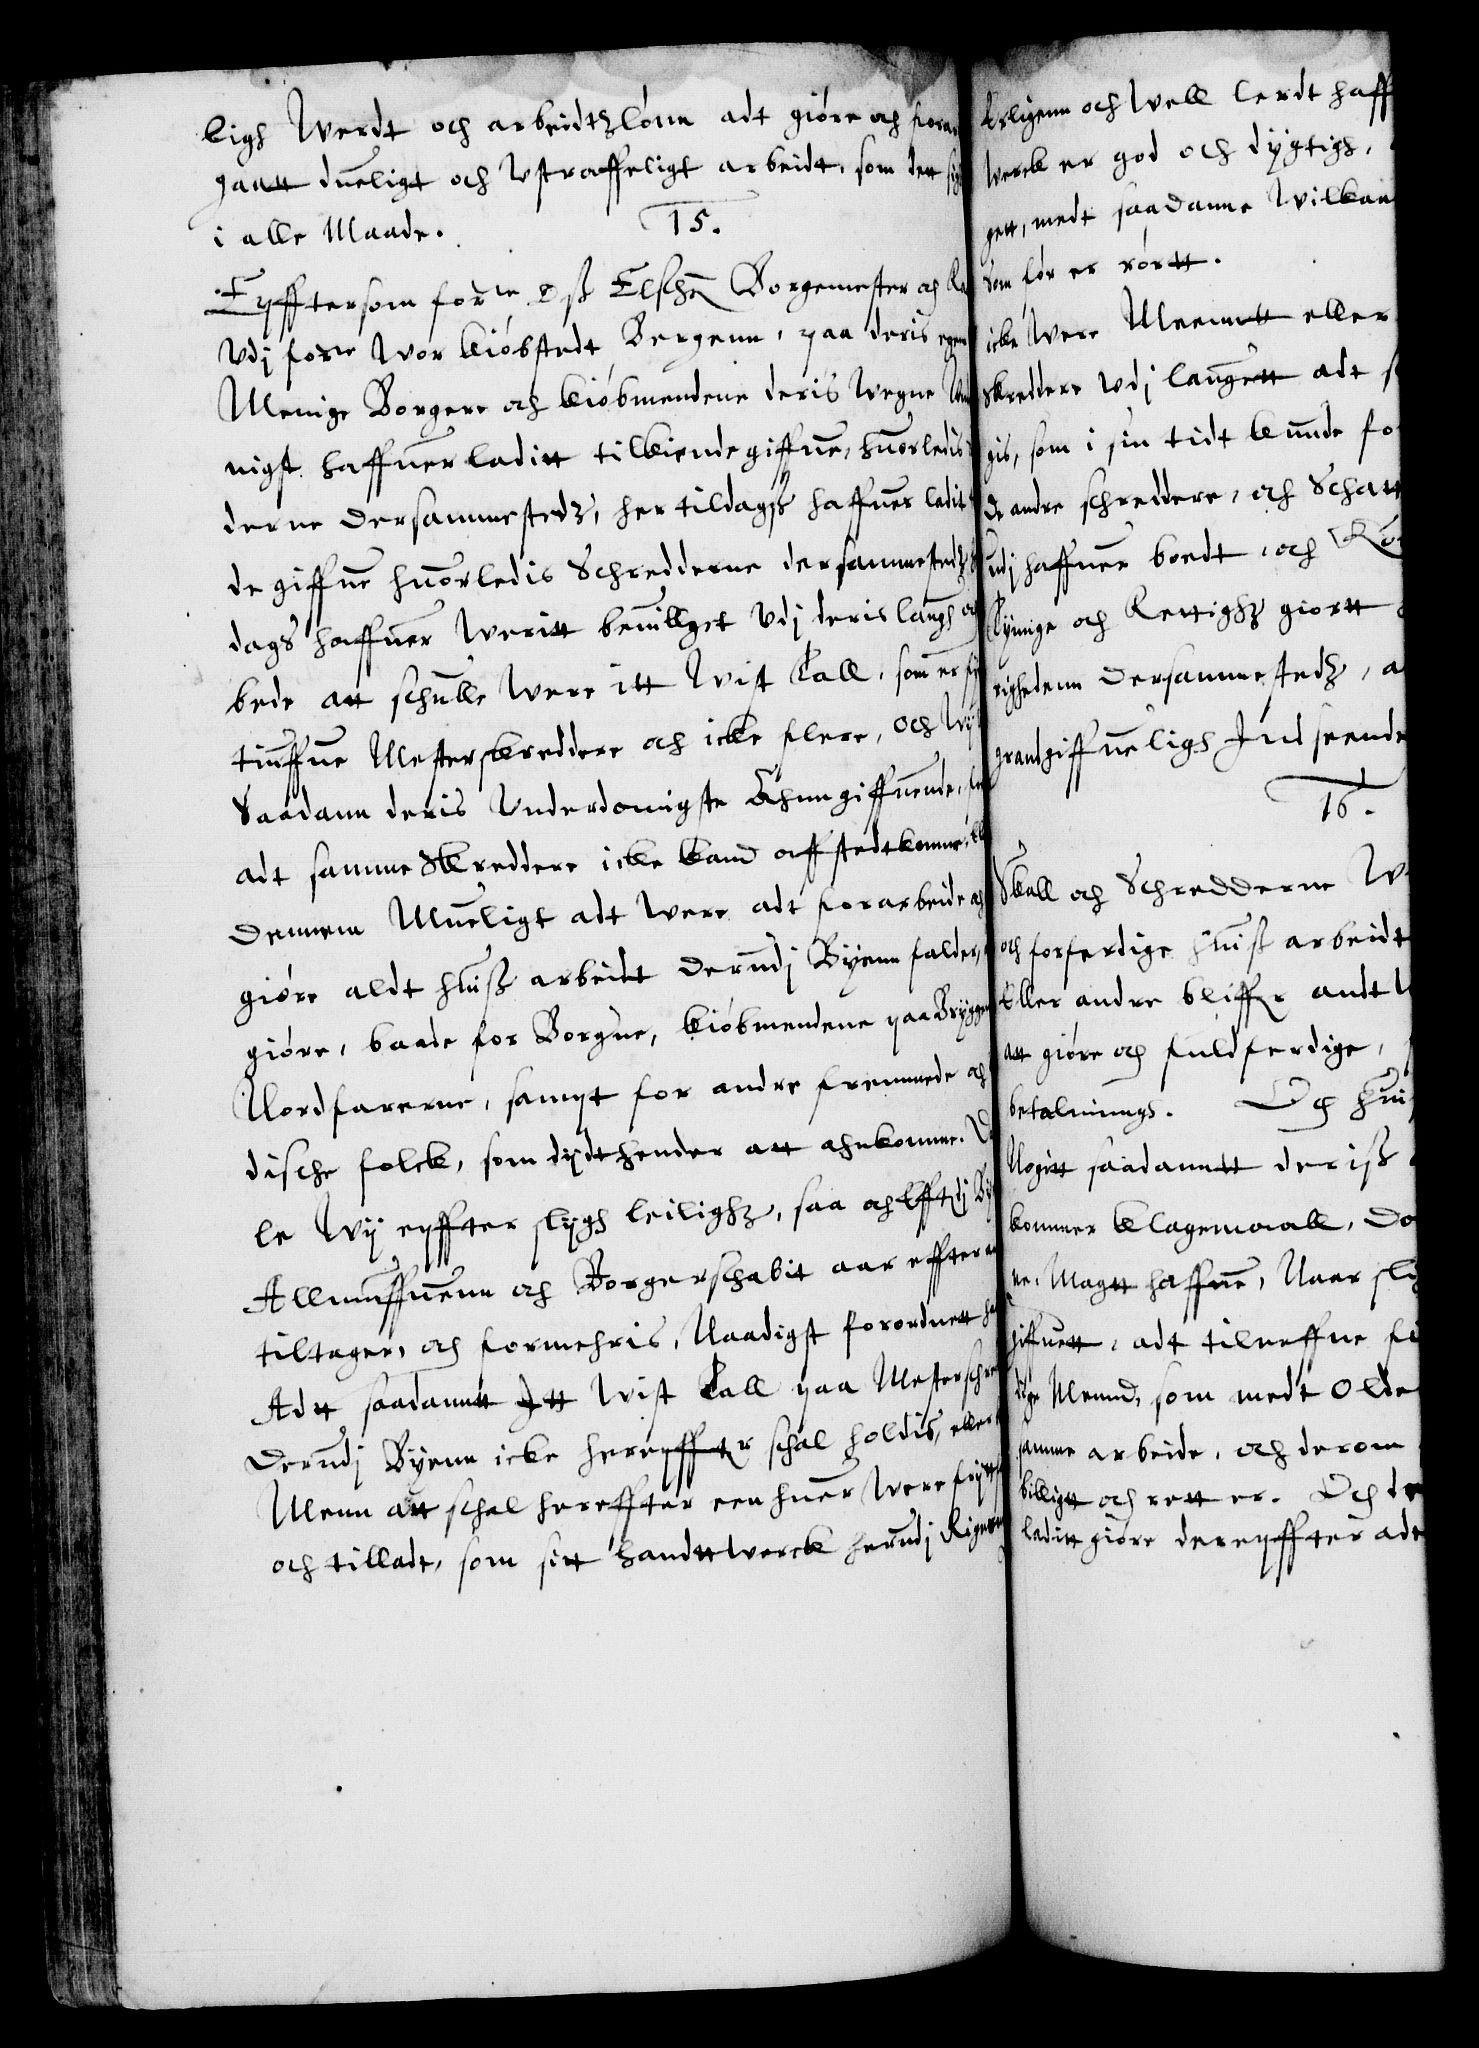 ligh Werdt och arbeidtzlönn adt giöre och
gaatt dueligt och Vstraffeligt arbeidt, som dett
i alle Maade.
15.
Eyfftersom forne Oss Elsche Borgemester och
Vdj forne wor kiöbstedt Bergenn, paa deris egen
Menige Borgere och kiöbmendene deris Wegne
nigst haffuer laditt tilkiendegiffue, huorledis
derne dersammestedz, her tildags haffuer ladit
de giffue huorledis Schredderne dersammestedz
dags haffuer Weritt beuillget Vdj deris laugh
bede att schulle Were itt Wist tall, som er
tiuffue Mesterskreddere och icke flere, och
Saadann deris Vnderdonigste Ahnngiffuende,
adt samme Skreddere icke kand affstedkomme,
dennem Mueligt adt Were adt forarbeide och
giöre aldt huiss arbeidt derudj Byenn falder,
giöre, baade for Borgne, kiöbmendene paa Bryggen
Nordfarerne, sampt for andre fremmede och
dische folck, som dydt hender att ahnkomme.
le Wy epffter slygh leilighz, saa och Efftj
Allmuffuenn och Borgerschabit aar effter
tiltager, och formehris, Naadigst forordnett
Adt saadanntt Itt wist tall paa Mesterschre
derudj Byenn icke herepffter schal holdis, eller
Menn att schal hereffter een huer Were frytt
och tilladt, som sitt handttwerck herudj Rigerne
Erligenn och Well lerdt haff
Werck er god och dygtigh,
gett, medt saadanne Wilkaa
Som för er rörtt.
icke Were Meenntt eller
Skreddere Vdj laugett adt
gis, som i sin tidt kunde fo
de andre schreddere, och Schatt
udj haffuer boedt, och
Rettighz giortt
righedenn dersammestedz,
grandgiffueligh Indseende
16.
Skall och Schredderne
och forferdige huiss arbeidt
Eller andre bliffr andt
att giöre och fuldferdige,
betalnningh. Och
Nogitt saadanntt deriss
kommer klagemaall, Da
ne, Magtt haffue, Naar
giffuett, adt tilneffne
dige Mennd, som medt Olde
samme arbeide, och derom
billigtt och rett er. Och
laditt giöre derepffter adt